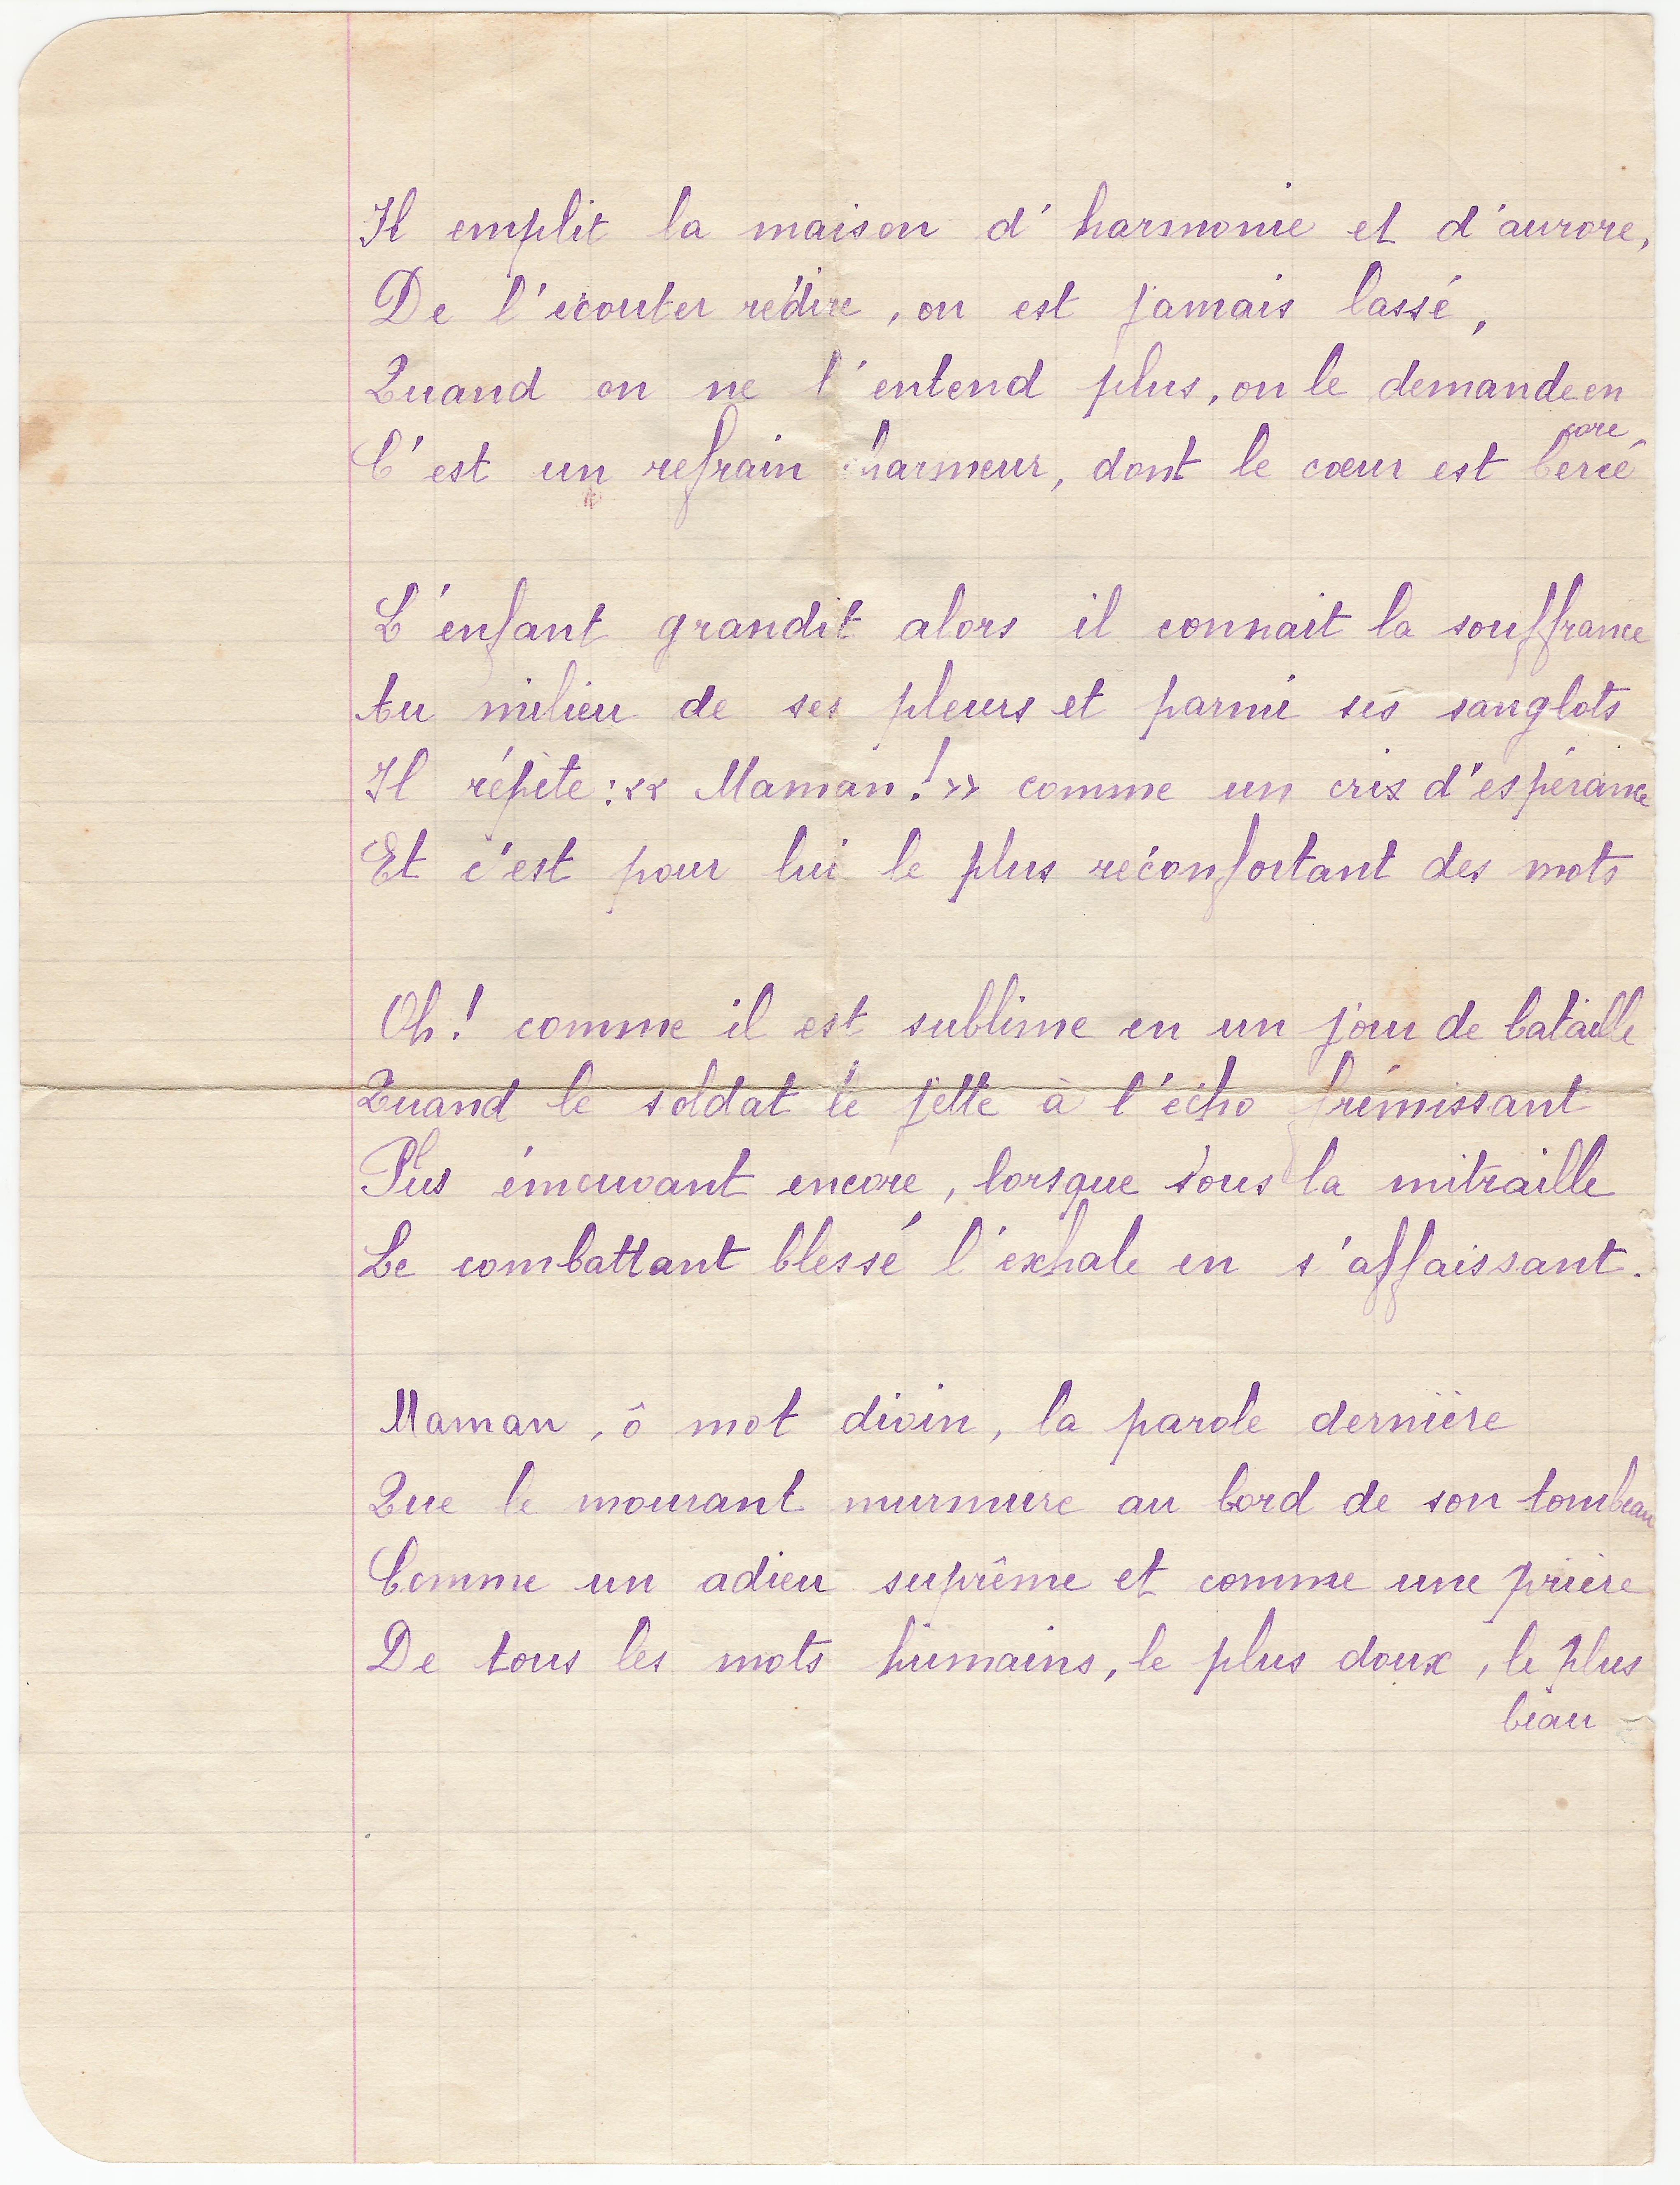 Il emplit la maison d'harmonie et d'aurore,
De l'écouter rédire, on est jamais lassé,
Quand on ne l'entend plus, on le demande en
core
C'est un refrain charmeur, dont le cœur est bercé
L'enfant grandit alors il connait la souffrance
Au milieu de ses pleurs et parmi ses sanglots
Il répète : « Maman ! » comme un cris d'espérance
Et c'est pour lui le plus réconfortant des mots
Oh ! comme il est sublime en un jour de bataille
Quand le soldat le jette à l'écho frémissant
Plus émouvant encore, lorsque sous la mitraille
Le combattant blessé l'exhale en s'affaissant.
Maman, ô mot divin, la parole dernière
Que le mourant murmure au bord de son tombeau
Comme un adieu suprême et comme une prière
De tous les mots humains, le plus doux, le plus
beau